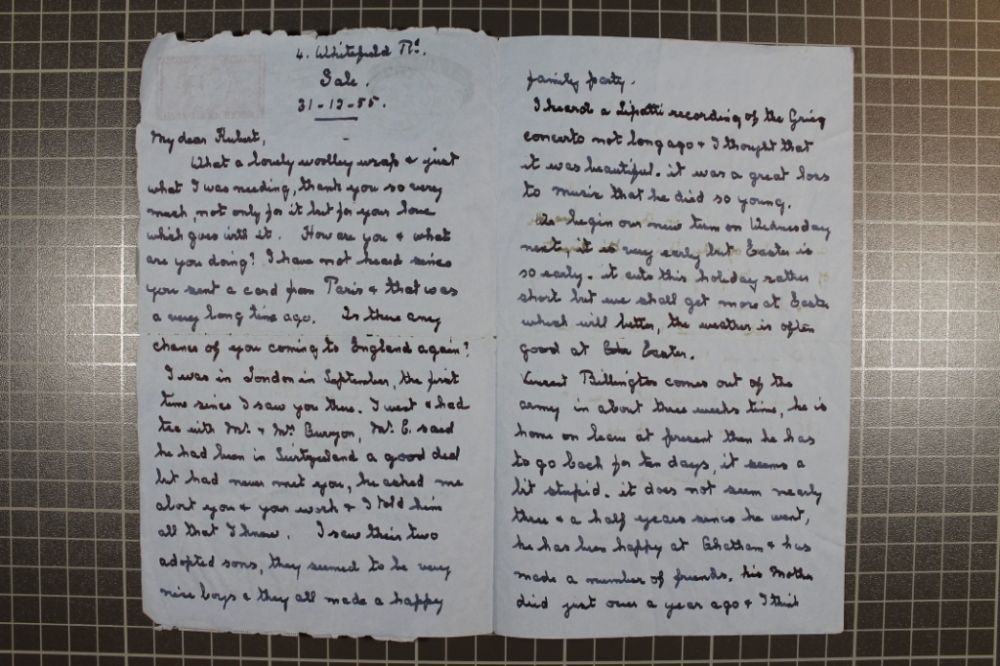 4. Whitefield Rd.
Sale.
31-12-55.
My dear Robert,
What a lovely woolley wrap & just
what I was needing, thank you so very
much, not only for it but for your love
which goes with it. How are you & what
are you doing? I have not heard since
you sent a card from Paris & that was
a very long time ago. Is there any
chance of you coming to England again?
I was in London in September, the first
time since I saw you there. I went & had
tea with Mr. & Mrs. Mr. E. said
he had been in Switzerland a good deal
but had never met you, he asked me
about you & your work & I told him
all that I knew. I saw their two
adopted sons, they seemed to be very
nice boys & they all made a happy
family party.
I heard a Lipatti recording of the Grieg
concerto not long ago & I thought that
it was beautiful. it was a great loss
to music that he died so young.
We begin our new term on Wednesday
next, it is very early but Easter is
so early. it cuts this holiday rather
short but we shall get more at Easter
which will better, the weather is often
good at Easter.
Vincent Billington comes out of the
army in about three weeks time, he is
home on leave at present then he has
to go back for ten days, it seems a
bit stupid. it does not seem nearly
three & a half years since he went,
he has been happy at Chatham & has
made a number of friends. his Mother
died just over a year ago & I think